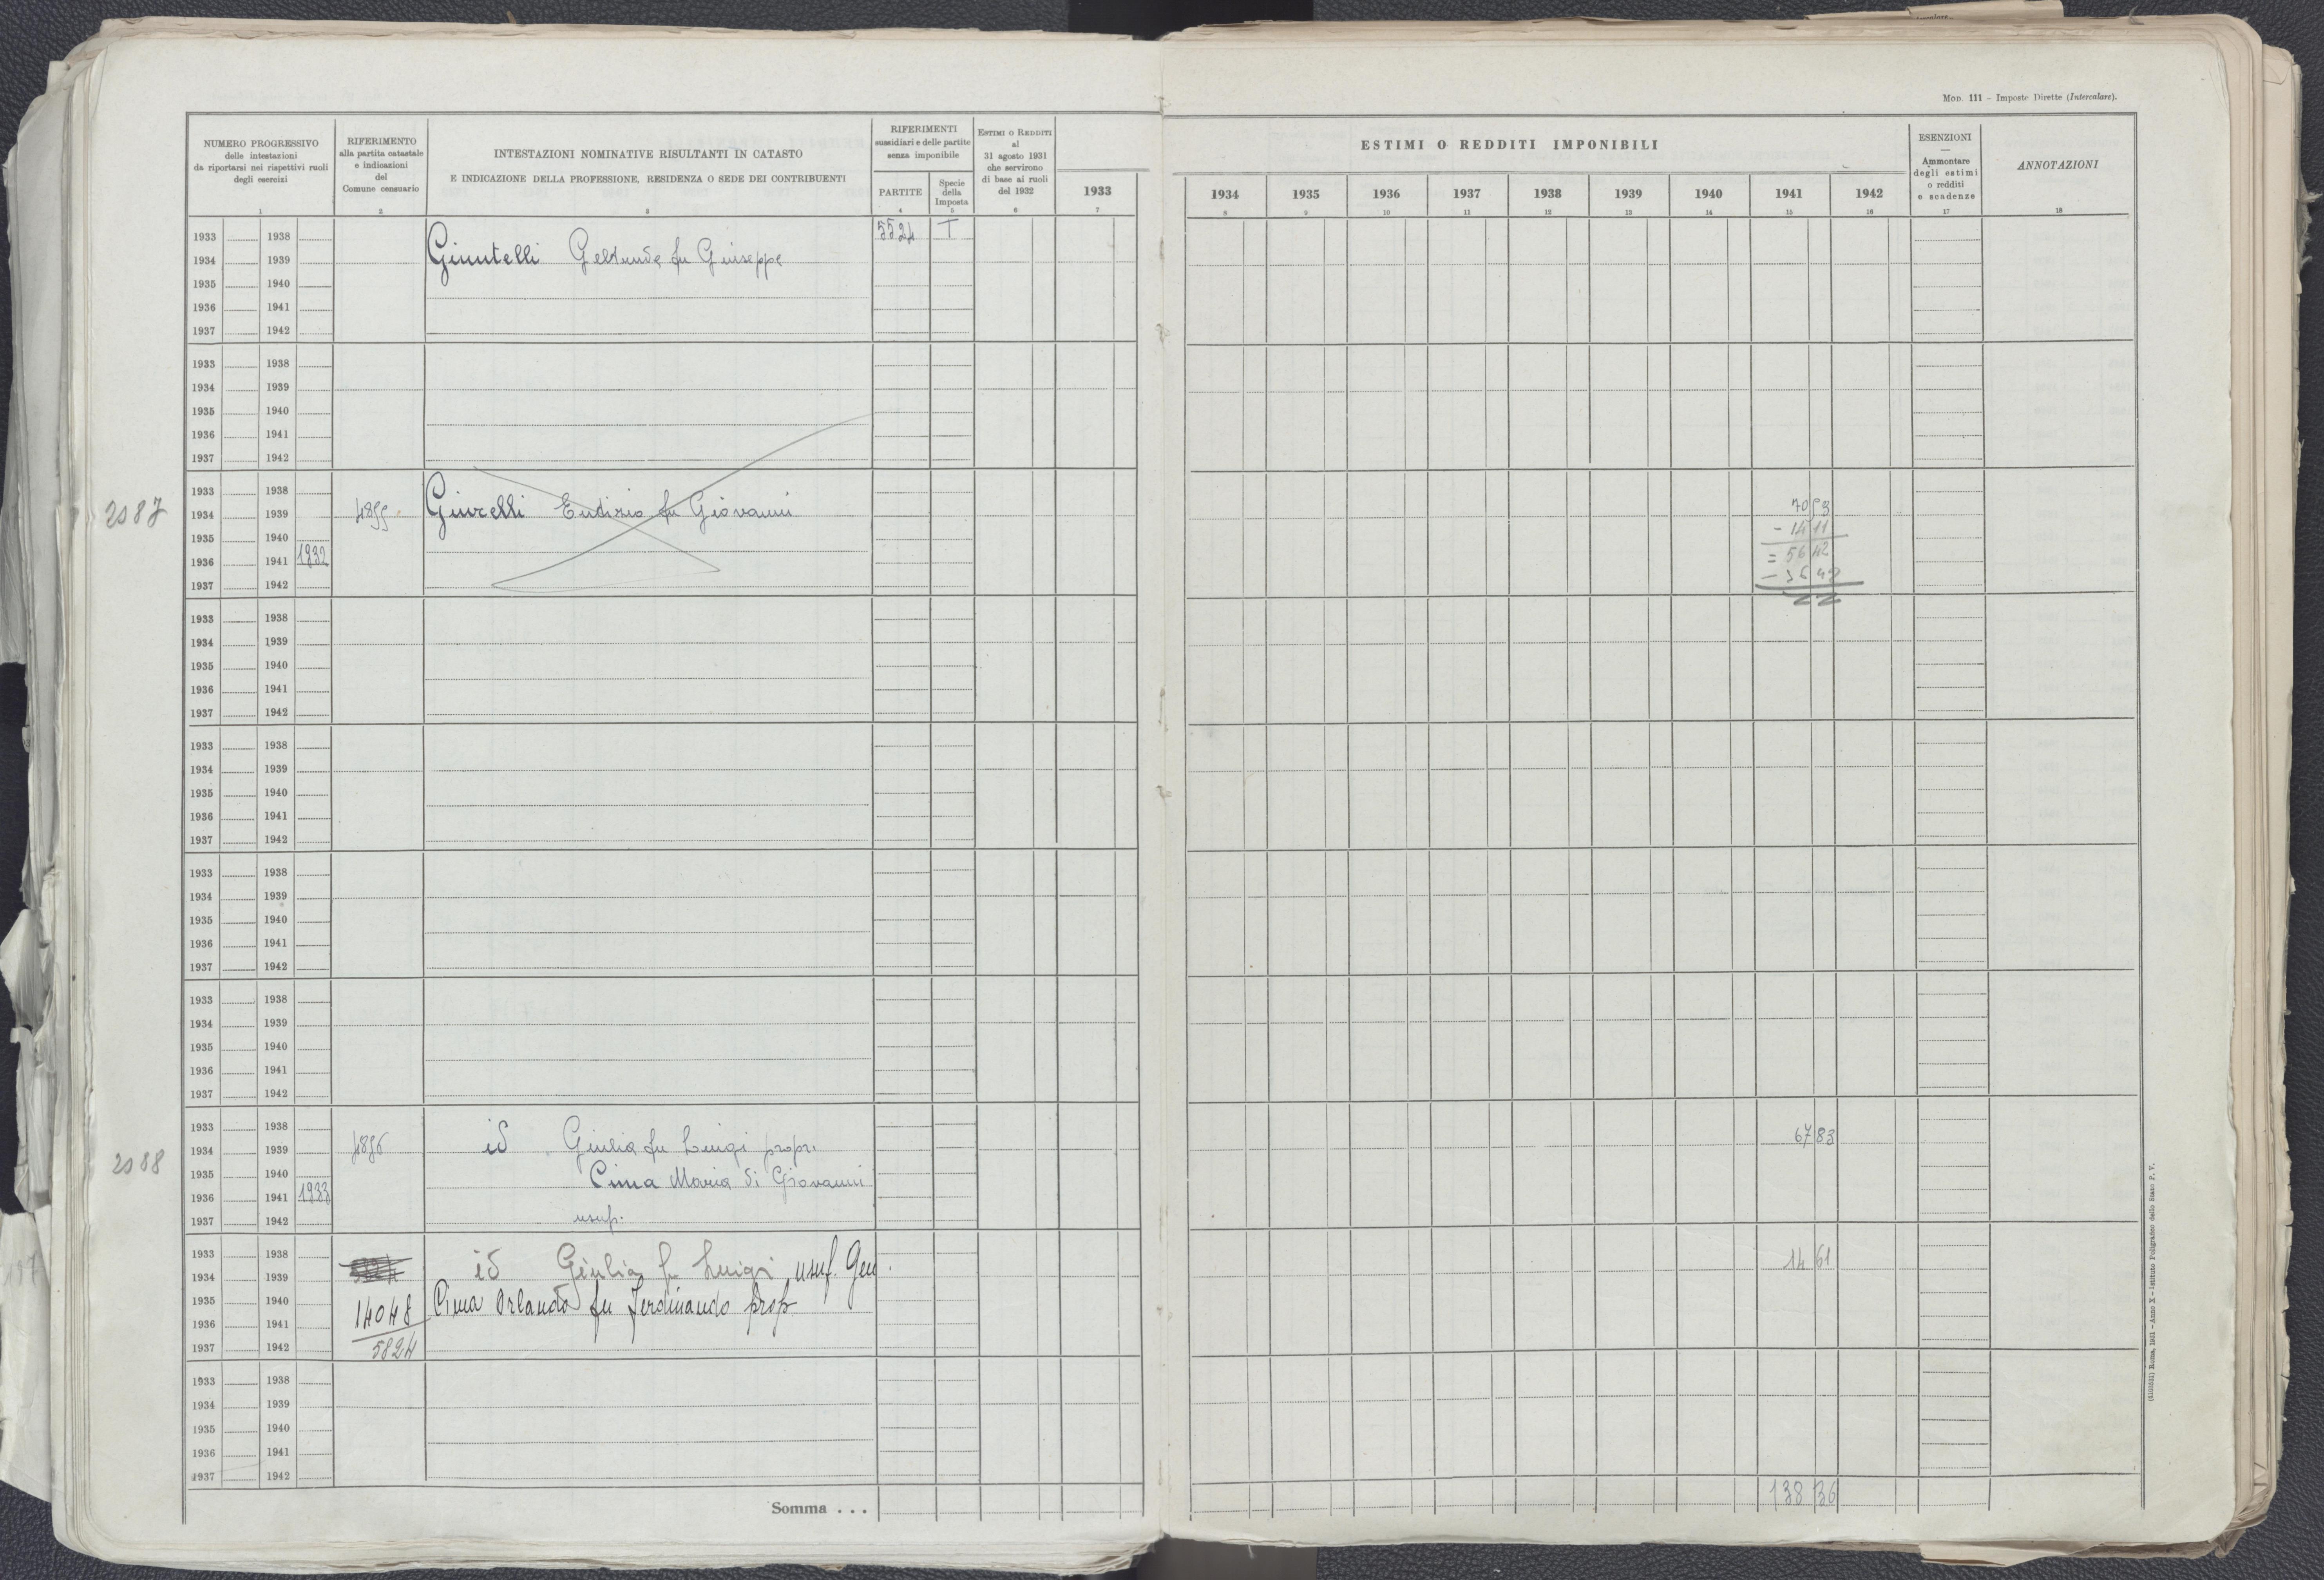 Mod. 111 - Imposte Dirette (Intercalare).
NUMERO PROGRESSIVO
delle intestazioni
da riportarsi nei rispettivi ruoli
degli esercizi
1
RIFERIMENTO
alla partita catastale
e indicazioni
del
Comune censuario
2
INTESTAZIONI NOMINATIVE RISULTANTI IN CATASTO
E INDICAZIONE DELLA PROFESSIONE, RESIDENZA O SEDE DEI CONTRIBUENTI
3
RIFERIMENTI
sussidiari e delle partite
senza imponibile
PARTITE
4
Specie
della
Imposta
5
Estimi o Redditi
al
31 agosto 1931
che servirono
di base ai ruoli
del 1932
6
1933
7
ESTIMI O REDDITI IMPONIBILI
1934 1935 1936 1937 1938 1939 1940 1941 1942
8 9 10 11 12 13 14 15 16
ESENZIONI
—
Ammontare
degli estimi
o redditi
e scadenze
17
ANNOTAZIONI
18
1933 1938 5524 T
1934 1939 Giuntelli Geltrude fu Giuseppe
1935 1940
1936 1941
1937 1942
1933 1938
1934 1939
1935 1940
1936 1941
1937 1942
1933 1938
2087 1934 1939 4895 Giurelli Eutizio fu Giovanni 70 53
1935 1940 - 14 11
1936 1941 1932 = 56 42
1937 1942 - 56 42
1933 1938
1934 1939
1935 1940
1936 1941
1937 1942
1933 1938
1934 1939
1935 1940
1936 1941
1937 1942
1933 1938
1934 1939
1935 1940
1936 1941
1937 1942
1933 1938
1934 1939
1935 1940
1936 1941
1937 1942
1933 1938
2088 1934 1939 4896 id Giulia fu Luigi propr. 67 83
1935 1940 Cima Maria di Giovanni
1936 1941 1933
1937 1942 usuf.
1933 1938 14 61
1934 1939 id Giulia fu Luigi usuf. Gen
1935 1940 14048 Cima Orlando fu Ferdinando prop
1936 1941
1937 1942 5824
1933 1938
1934 1939
1935 1940
1936 1941
1937 1942
Somma . . . 138 36
(6103531) Roma, 1931 - Anno X - Istituto Poligrafico dello Stato P. V.